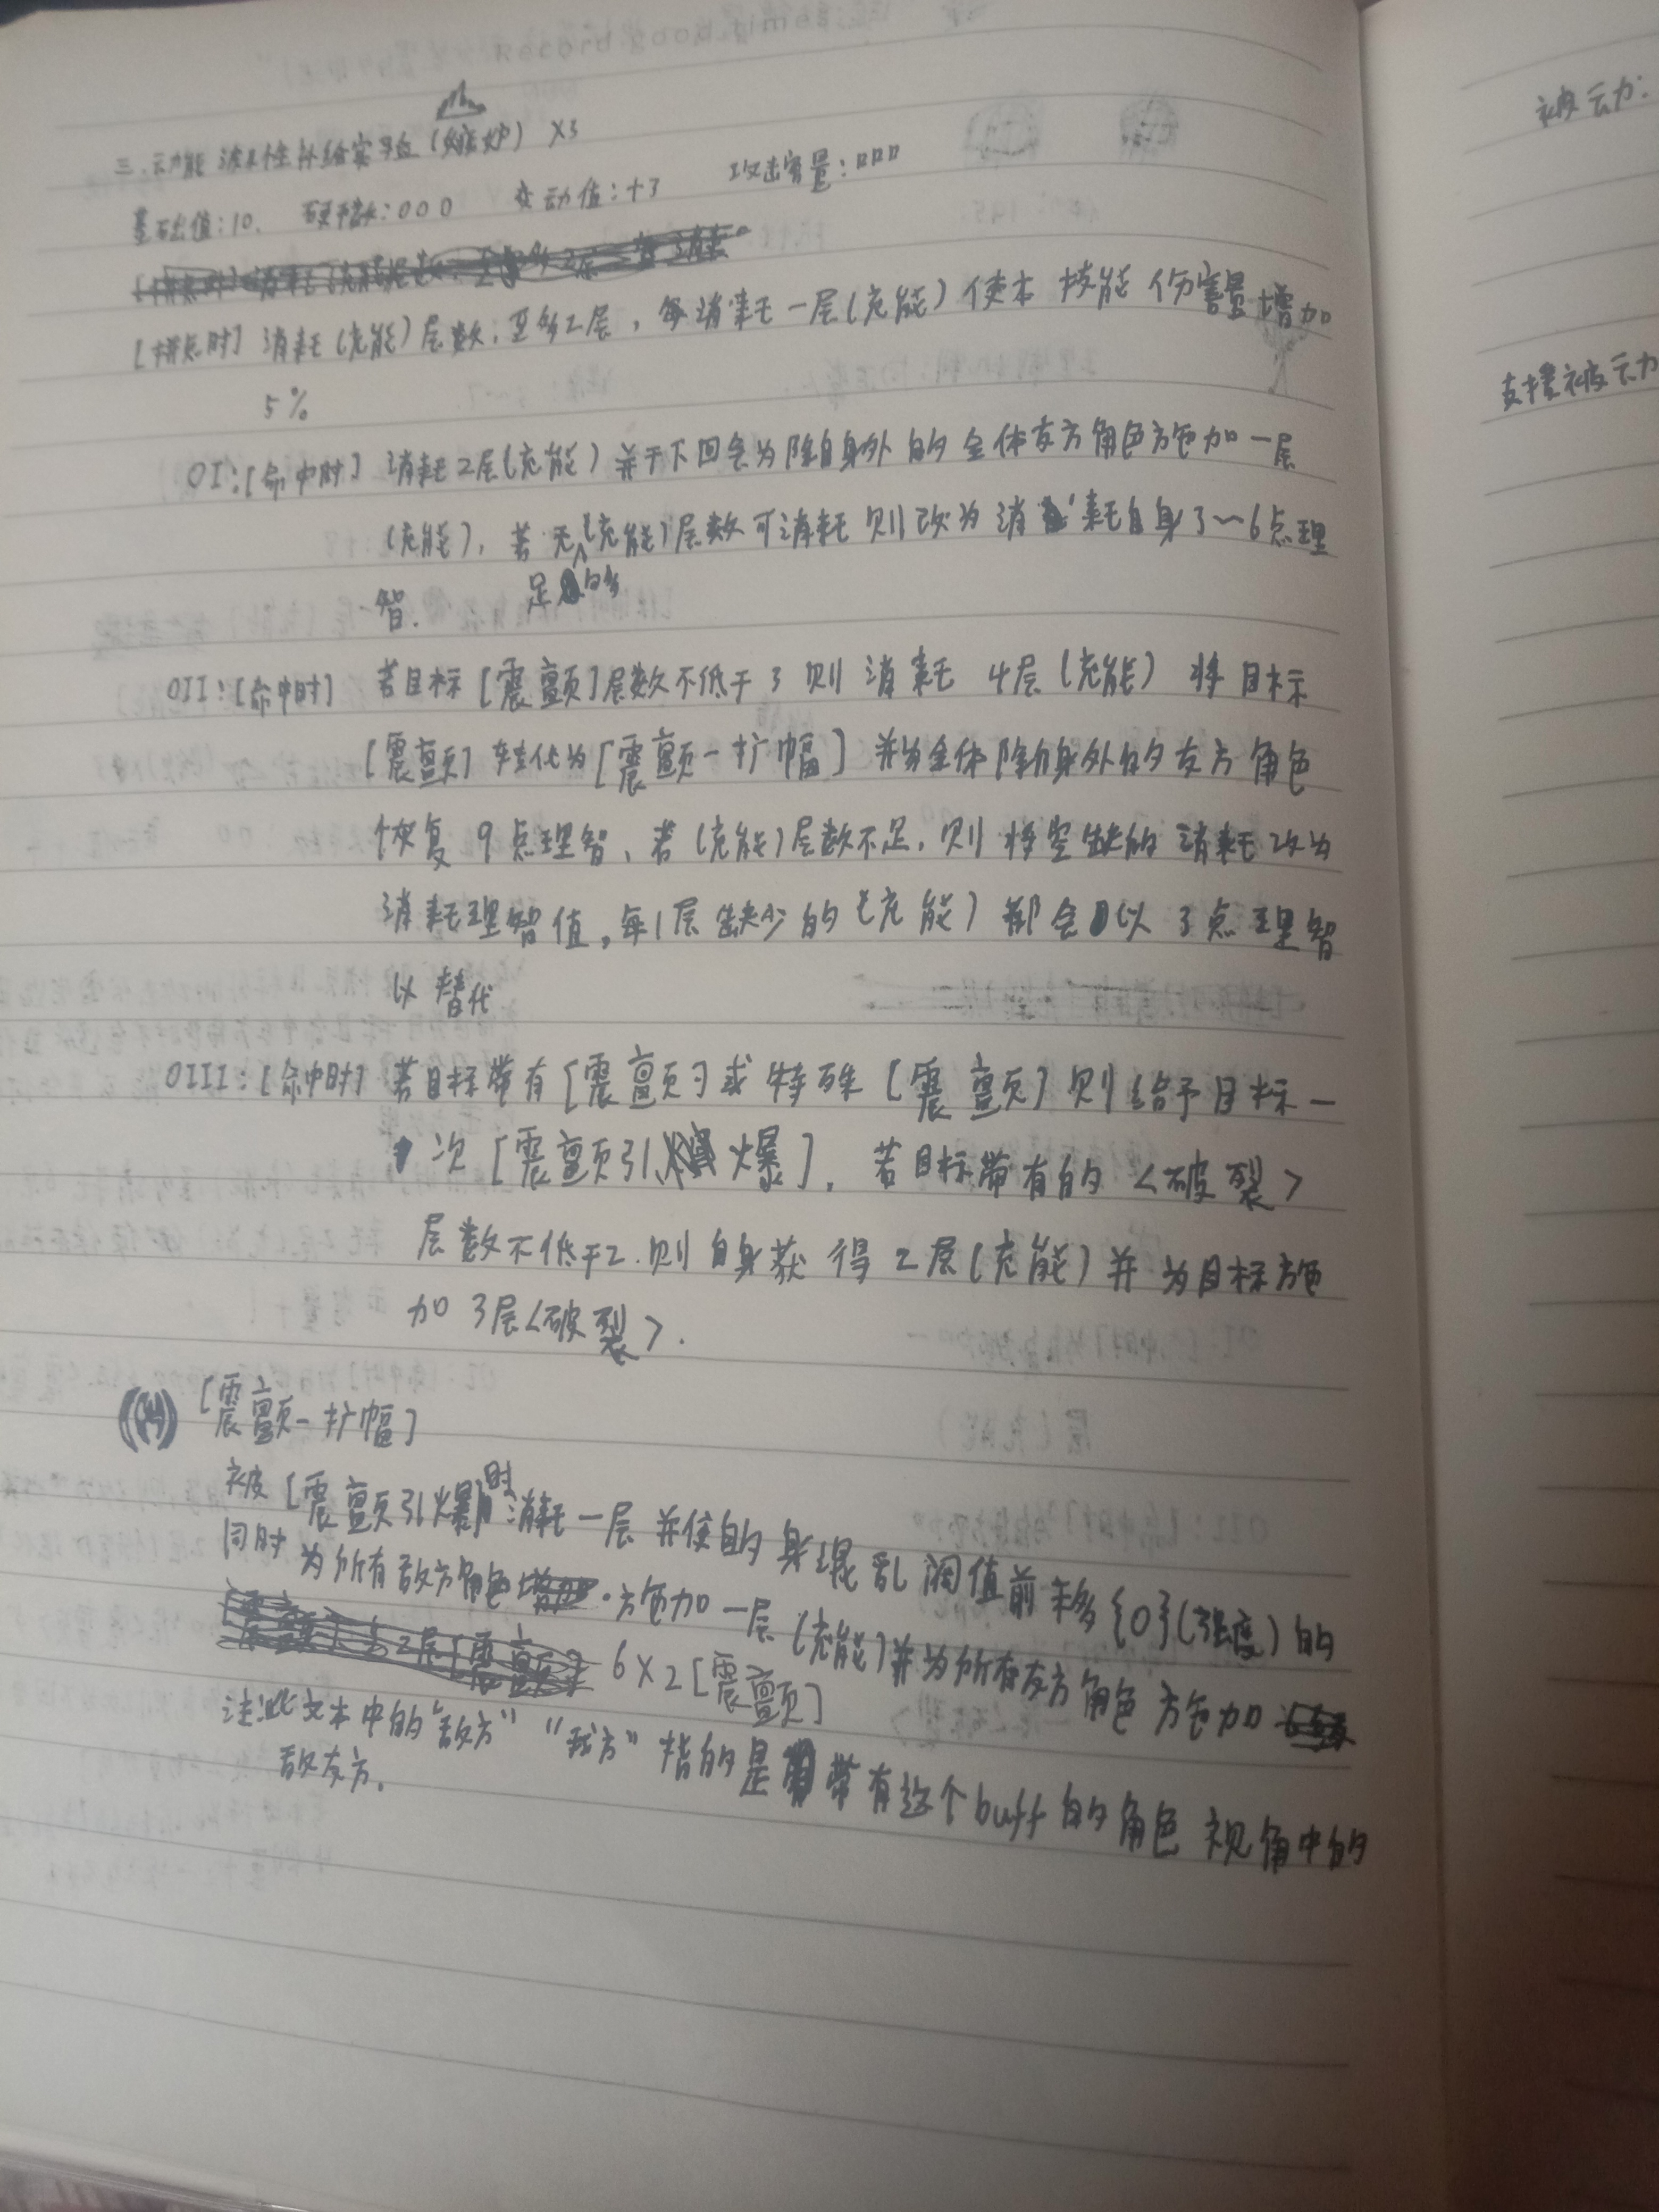 三.动能波纹性补给实平台（嫉妒）X3
基础值：10. 硬币数：000 变动值：+3 攻击容量：口口口
[拼点时] 消耗（充能）层数，至多2层，每消耗一层（充能）使本技能伤害量增加
5%
OI：[命中时] 消耗2层（充能）并于下回合为除自身外的全体友方角色施加一层
（充能），若无足够的（充能）层数可消耗则改为消耗自身3～6点理
智.
OII：[命中时] 若目标[震颤]层数不低于3则消耗4层（充能）将目标
[震颤]转化为[震颤-扩幅]并为全体除自身外的友方角色
恢复9点理智，若（充能）层数不足，则将空缺的消耗改为
消耗理智值，每1层缺少的（充能）都会以3点理智
以替代
OIII：[命中时] 若目标带有[震颤]或特殊[震颤]则给予目标一
次[震颤引爆]，若目标带有的<破裂>
层数不低于2.则自身获得2层（充能）并为目标施
加3层<破裂>.
[震颤-扩幅]
被[震颤引爆]时消耗一层并使自身混乱阈值前移{0}（强度）的
同时为所有敌方角色施加一层（充能）并为所有友方角色施加
6X2[震颤]
注：此文本中的“敌方”“我方”指的是带有这个buff的角色视角中的
敌友方.
被动：
支援被动